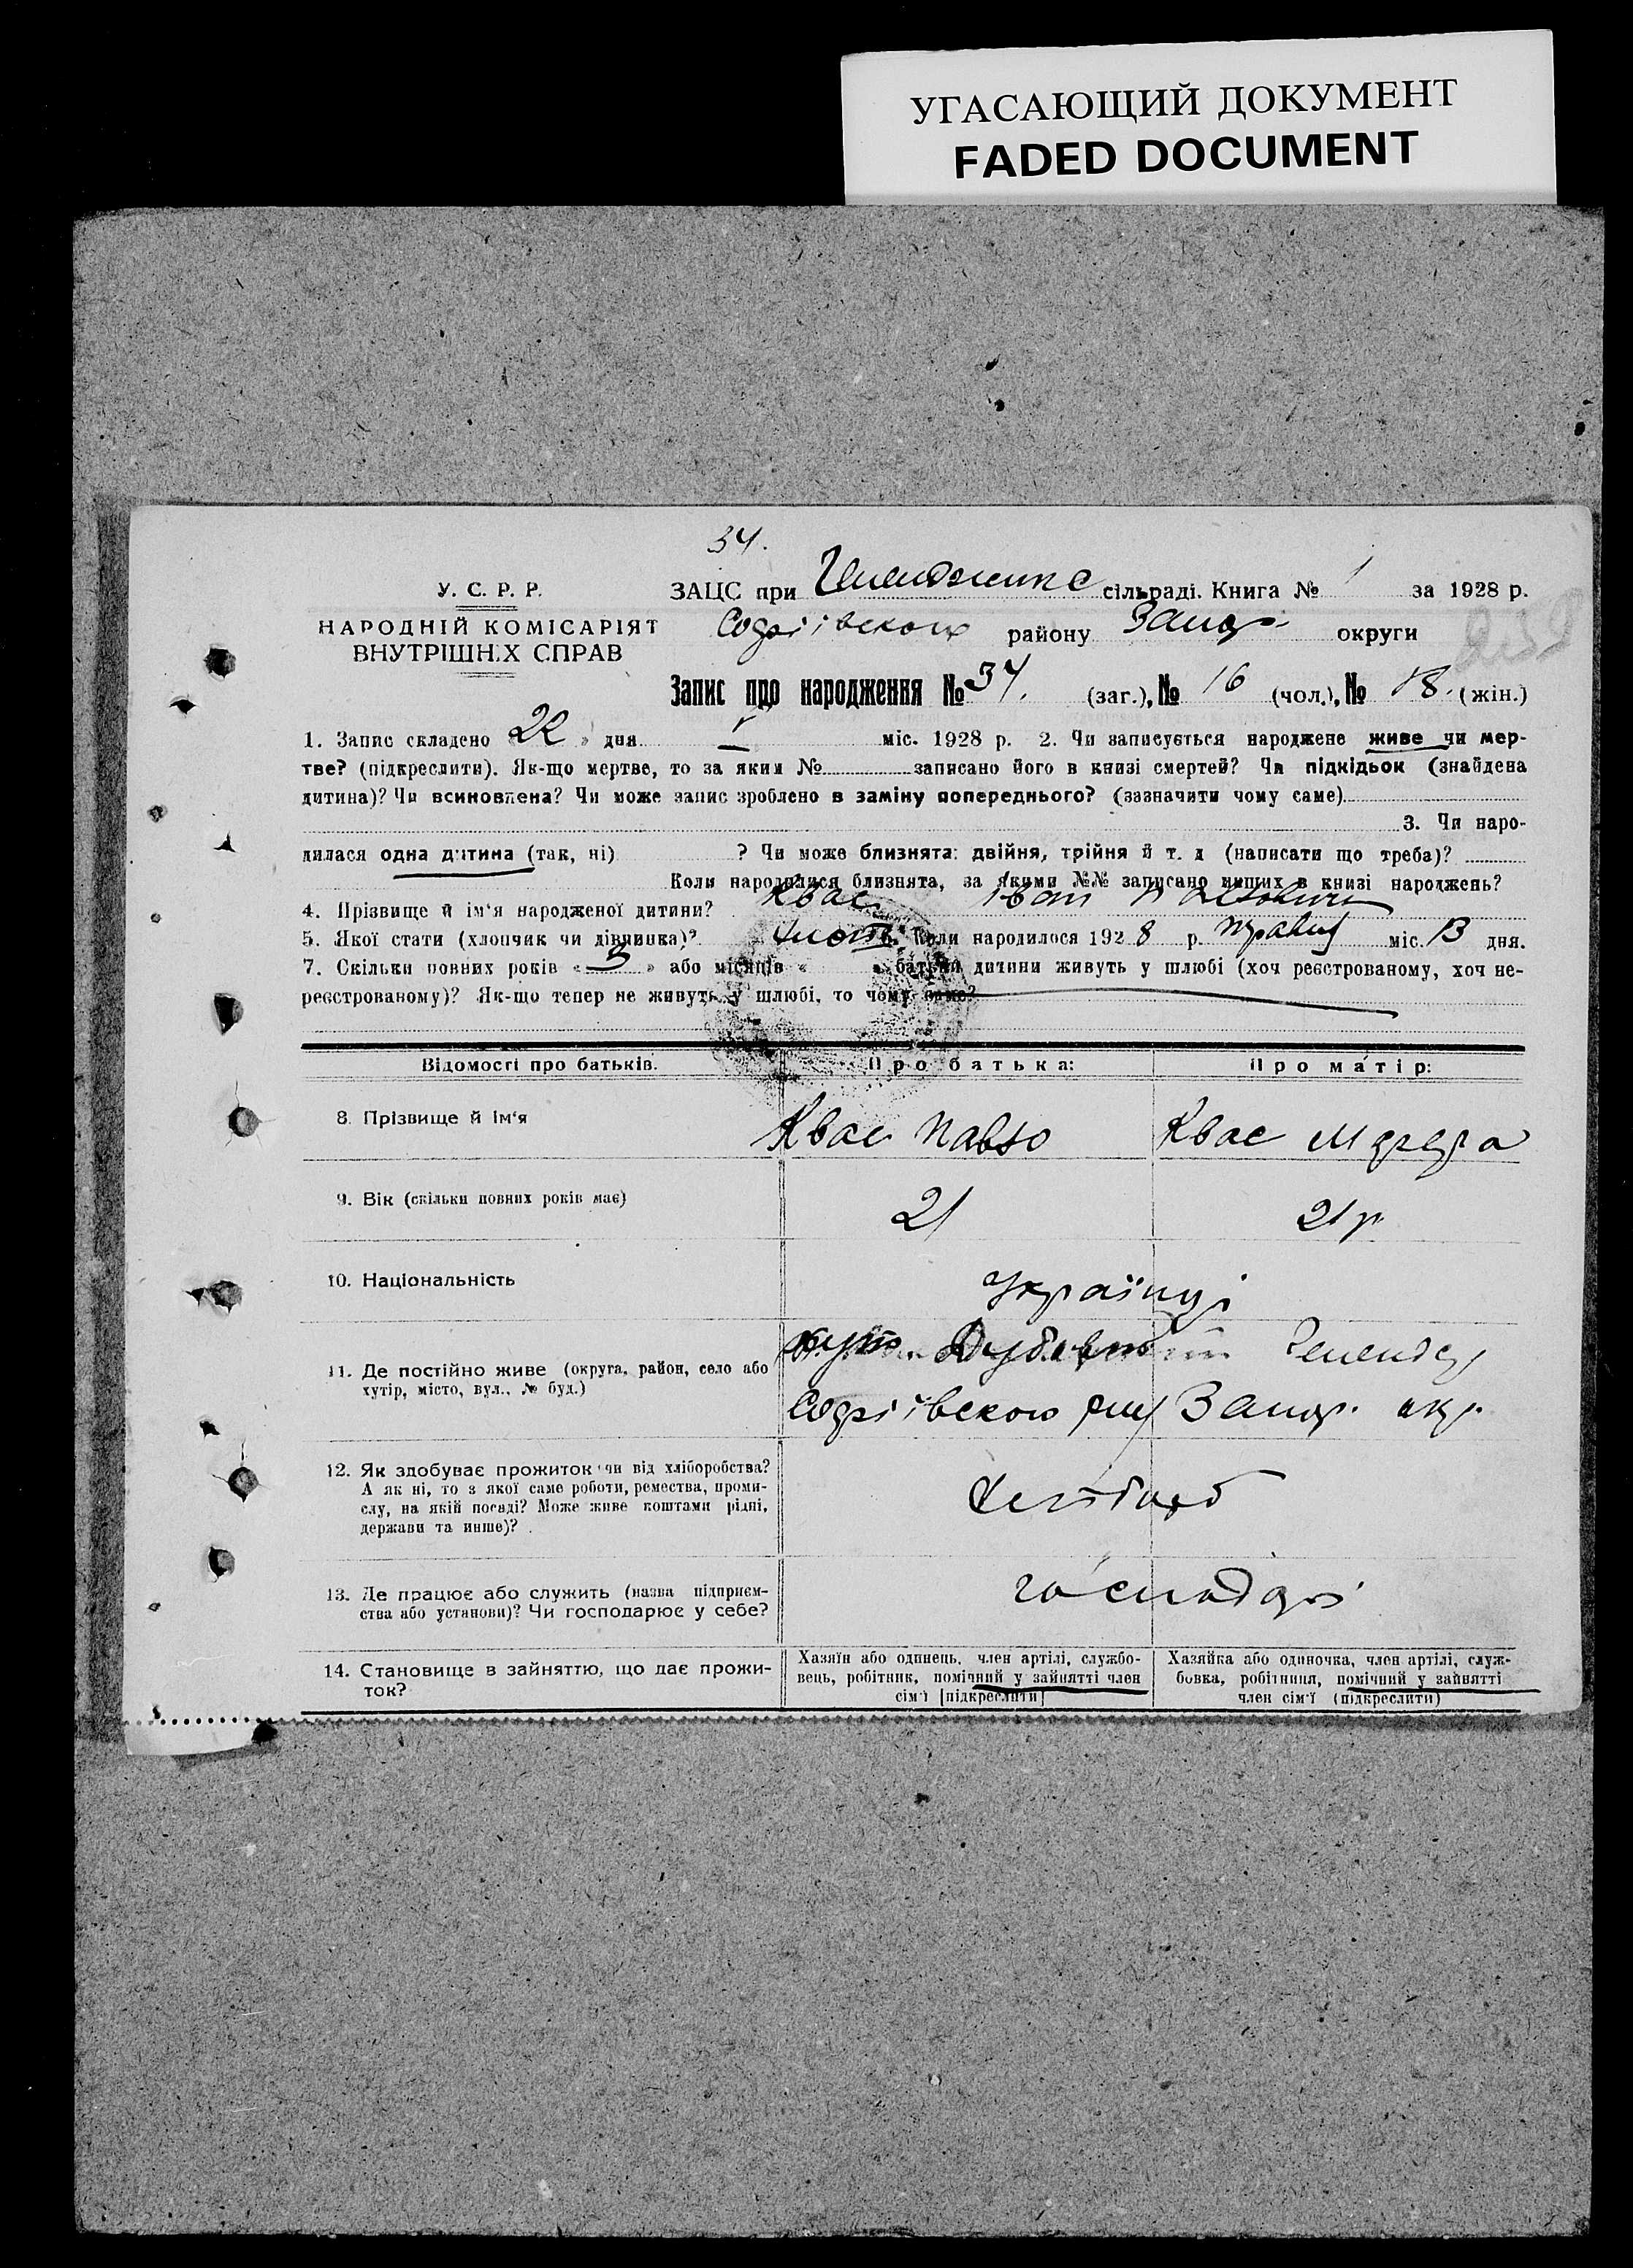 УГАСАЮЩИЙ ДОКУМЕНТ
FADED DOCUMENT
34.
У. С. Р. Р.
НАРОДНІЙ КОМІСАРІЯТ
ВНУТРІШНІХ СПРАВ
ЗАЦС при сільраді. Книга № 1 за 1928 р.
району Запор. округи
Запис про народження № 34. (заг.), № 16 (чол.), № 18. (жін.)
1. Запис складено « 22 » дня V міс. 1928 р. 2. Чи записується народжене живе чи мер-
тве? (підкреслити). Як-що мертве, то за яким № записано його в книзі смертей? Чи підкідьок (знайдена
дитина)? Чи всиновлена? Чи може запис зроблено в заміну попереднього? (зазначити чому саме)
3. Чи наро-
дилася одна дитина (так, ні) ? Чи може близнята: двійня, трійня й т. д (написати що треба)?
Коли народилися близнята, за якими №№ записано инших в книзі народжень?
4. Прізвище й ім'я народженої дитини? Квас Іван Павлович
5. Якої стати (хлопчик чи дівчинка)? Коли народилося 192 8 р. травня міс. 13 дня.
7. Скільки повних років « 3 » або місяців « » батьки дитини живуть у шлюбі (хоч реєстрованому, хоч не-
реєстрованому)? Як-що тепер не живуть у шлюбі, то чому саме?
Відомості про батьків. Про батька: Про матір:
8. Прізвище й ім'я Квас Павло Квас
9. Вік (скільки повних років має) 21 21 р
10. Національність Українці
11. Де постійно живе (округа, район, село або
хутір, місто, вул., № буд.) Запор. окр.
12. Як здобуває прожиток чи від хліборобства?
А як ні, то з якої саме роботи, ремества, проми-
слу, на якій посаді? Може живе коштами рідні,
держави та инше)? Хлібороб
13. Де працює або служить (назва підприєм-
ства або установи)? Чи господарює у себе? господарі
14. Становище в зайняттю, що дає прожи-
ток?
Хазяїн або одинець, член артілі, службо-
вець, робітник, помічний у зайнятті член
сім'ї [підкреслити]
Хазяйка або одиночка, член артілі, служ-
бовка, робітниця, помічний у зайнятті
член сім'ї (підкреслити)